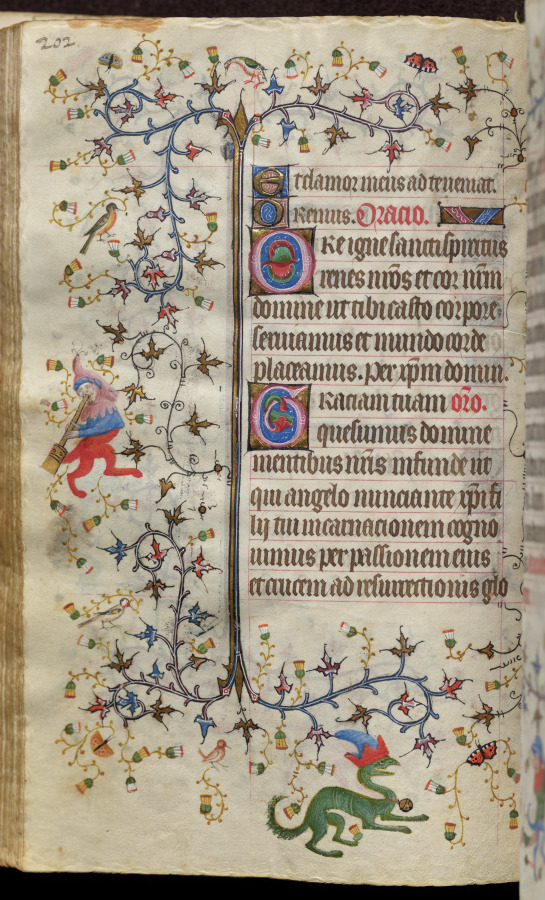 202.
Et clamor meus ad te veniat.
Oremus. Oracio.
Ure igne sancti spiritus
renes nr̄os et cor nr̄m
domine ut tibi casto corpore
seruiamus et mundo corde
placeamus. per xp̄m domin.
Graciam tuam or̄o.
quesumus domine
mentibus nr̄is infunde ut
qui angelo nunciante xp̄i fi
lij tui incarnacionem cogno
uimus per passionem eius
et crucem ad resurrectionis glo